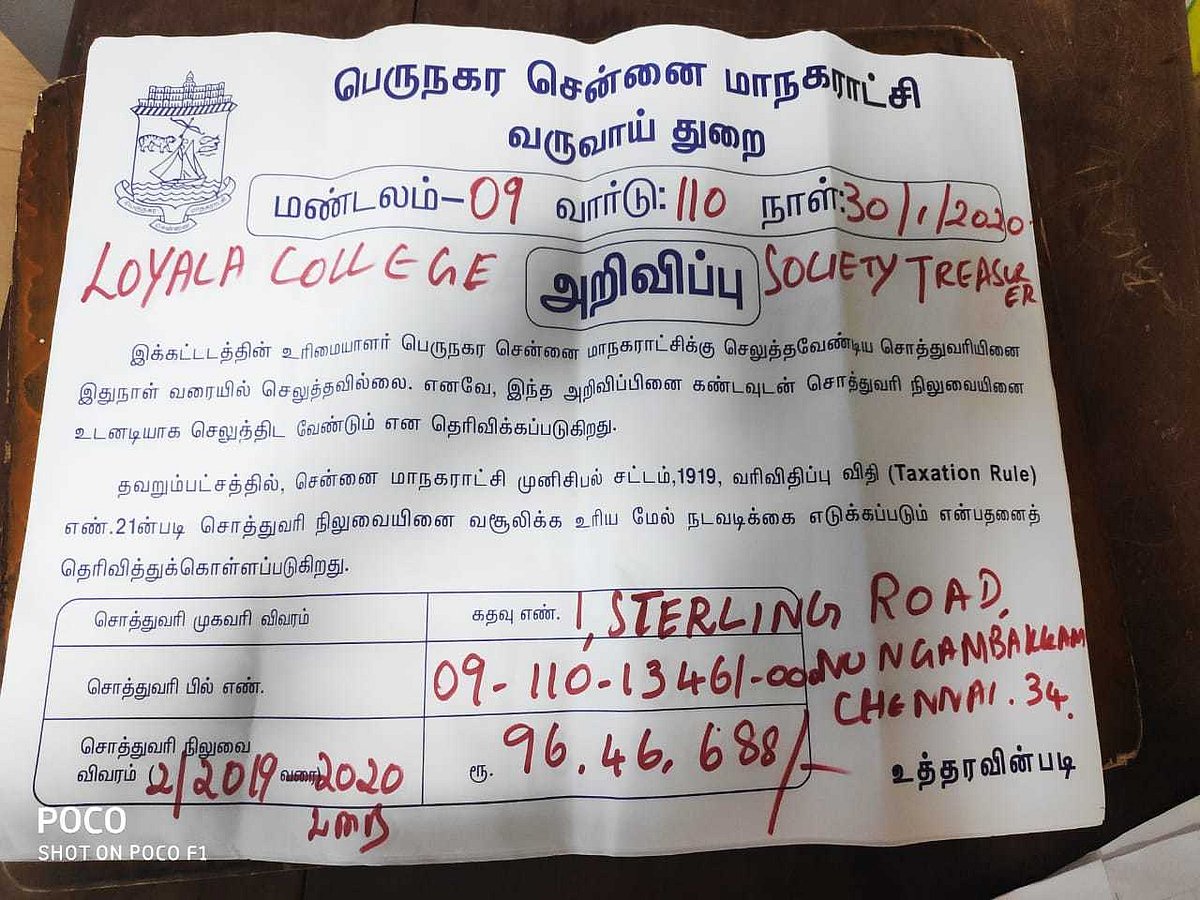 பெருநகர சென்னை மாநகராட்சி
வருவாய் துறை
பெருநகர மாநகராட்சி
சென்னை
மண்டலம்-09 வார்டு: 110 நாள்: 30/1/2020
LOYALA COLLEGE அறிவிப்பு SOCIETY TREASURER
இக்கட்டடத்தின் உரிமையாளர் பெருநகர சென்னை மாநகராட்சிக்கு செலுத்தவேண்டிய சொத்துவரியினை
இதுநாள் வரையில் செலுத்தவில்லை. எனவே, இந்த அறிவிப்பினை கண்டவுடன் சொத்துவரி நிலுவையினை
உடனடியாக செலுத்திட வேண்டும் என தெரிவிக்கப்படுகிறது.
தவறும்பட்சத்தில், சென்னை மாநகராட்சி முனிசிபல் சட்டம்,1919, வரிவிதிப்பு விதி (Taxation Rule)
எண்.21ன்படி சொத்துவரி நிலுவையினை வசூலிக்க உரிய மேல் நடவடிக்கை எடுக்கப்படும் என்பதனைத்
தெரிவித்துக்கொள்ளப்படுகிறது.
சொத்துவரி முகவரி விவரம் கதவு எண். 1, STERLING ROAD,
NUNGAMBAKKAM
CHENNAI. 34.
சொத்துவரி பில் எண். 09-110-13461-000
சொத்துவரி நிலுவை
விவரம் (2/2019 வரை) 2020
வரை
ரூ. 96.46.688/-
உத்தரவின்படி
POCO
SHOT ON POCO F1